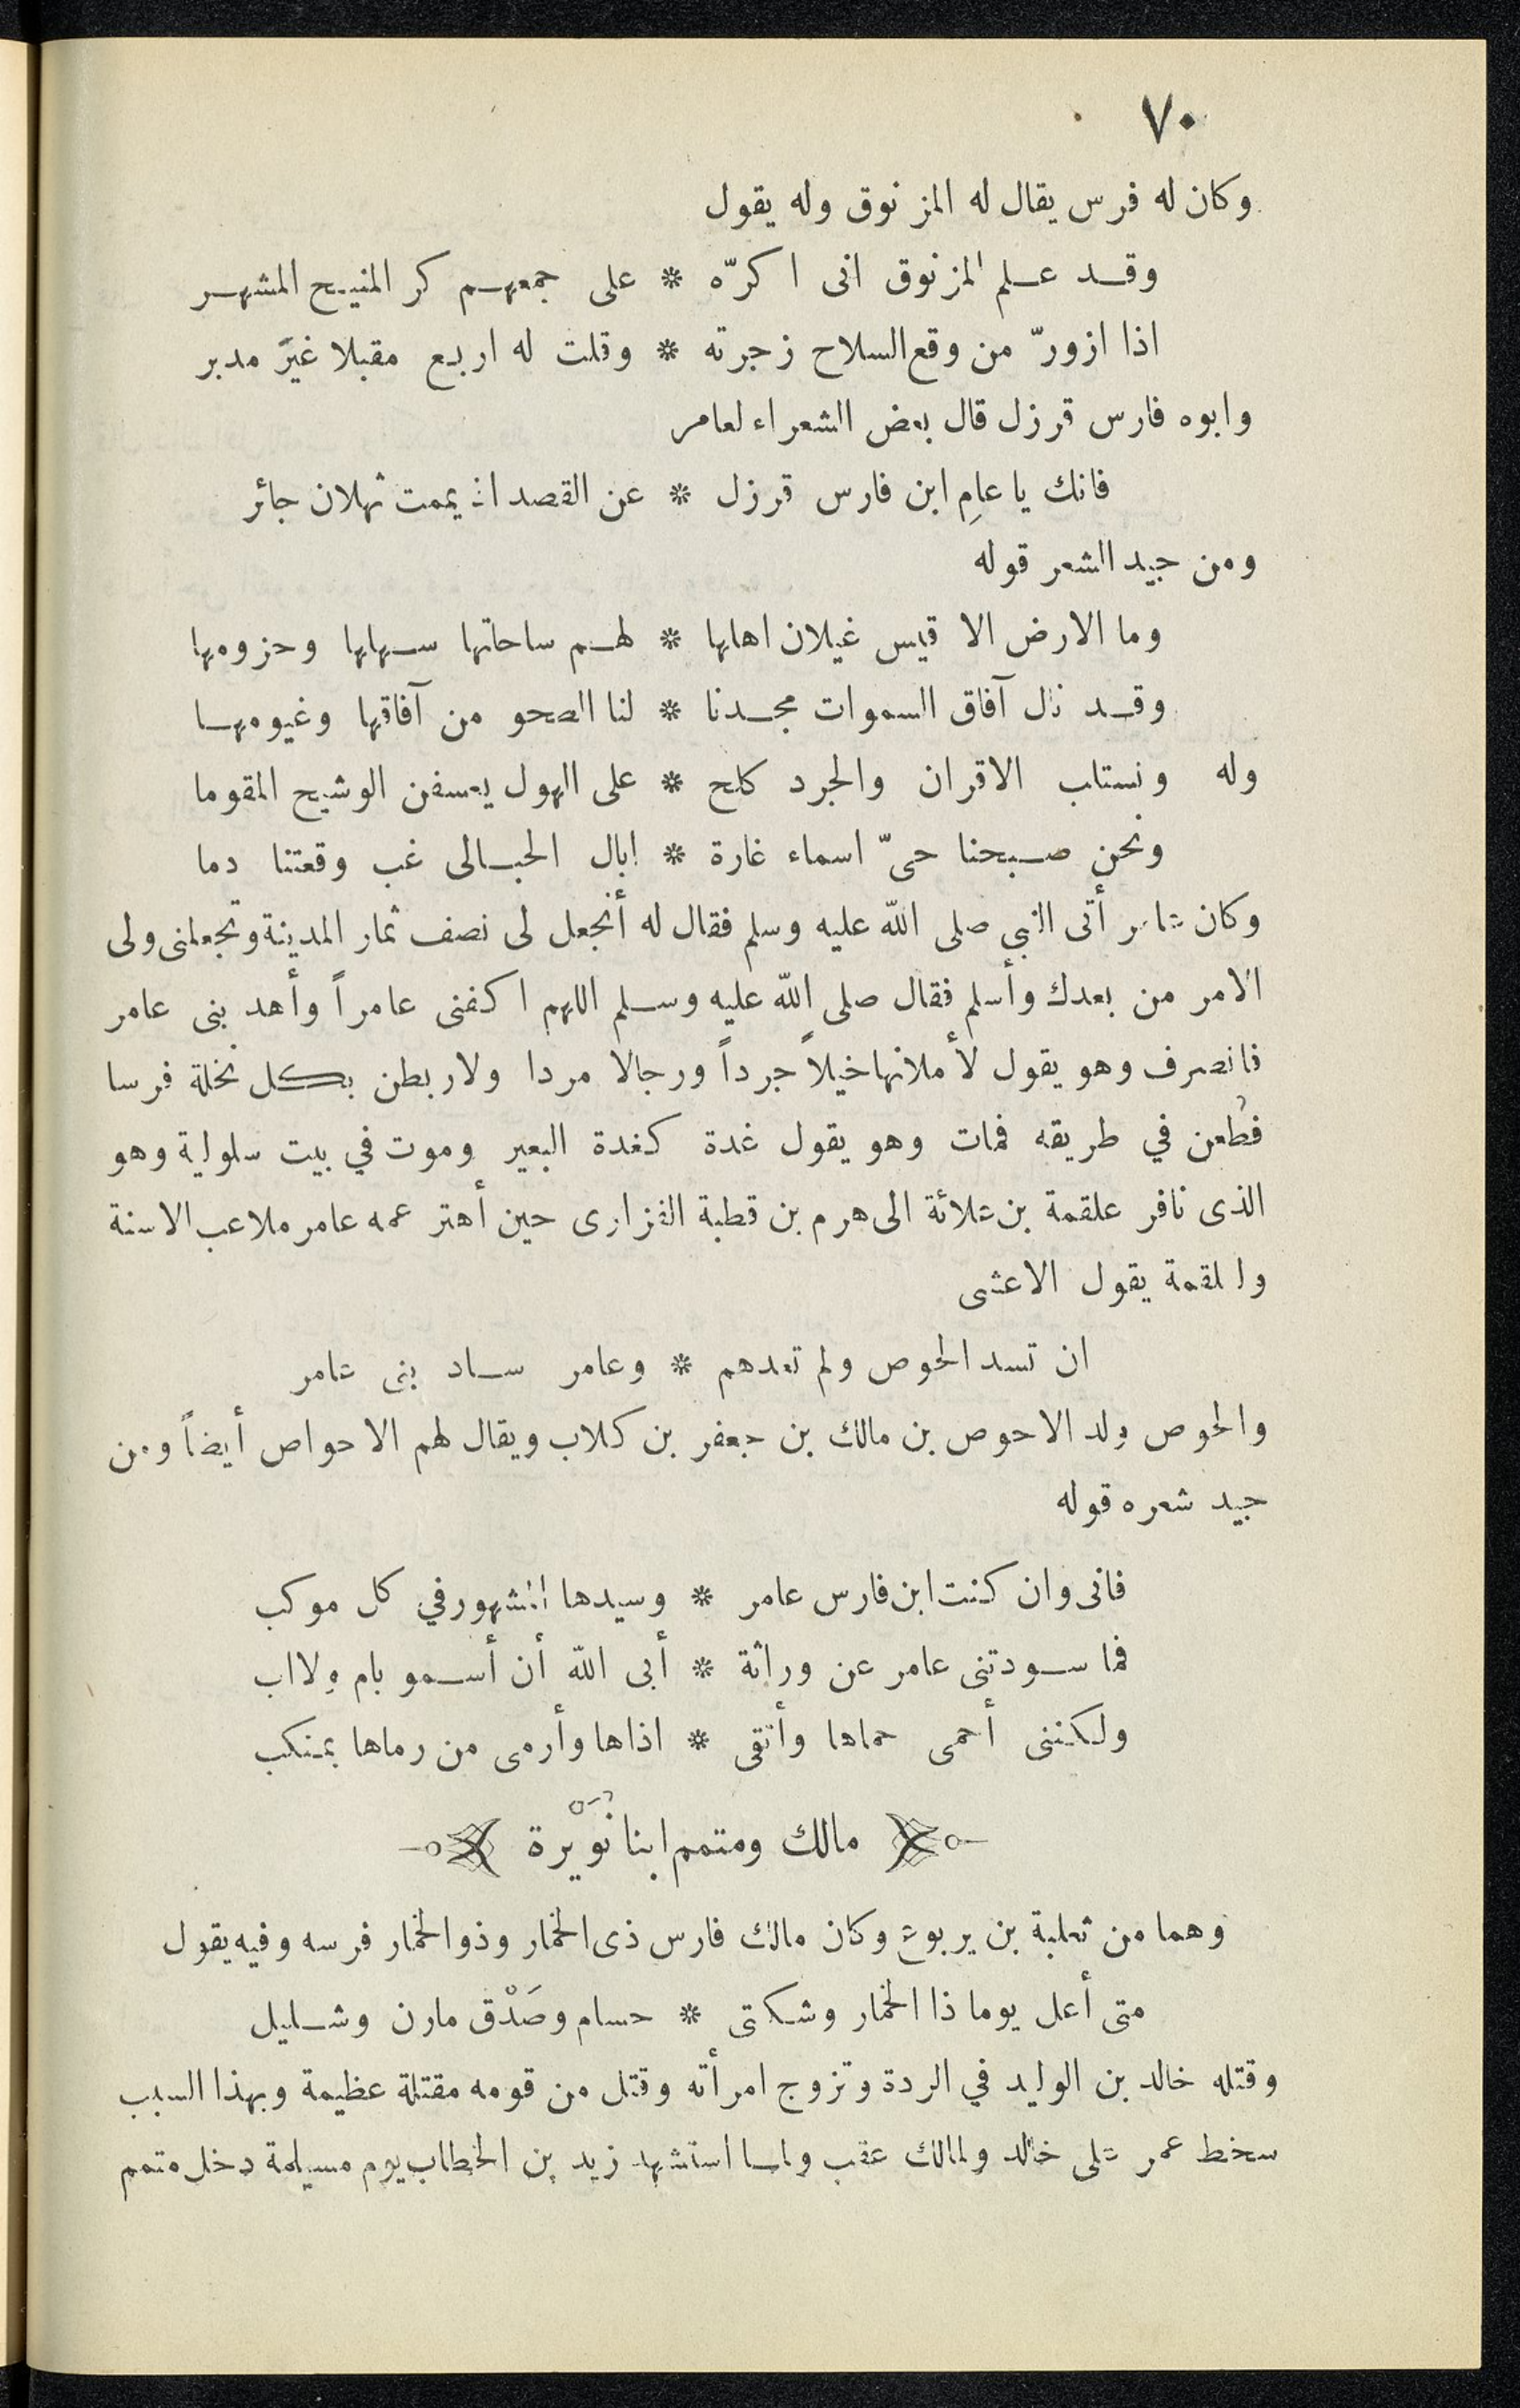 ٧٠
وكان له فرس يقال له المزنوق وله يقول
وقد علم المزنوق انى اكرّه * على جمعهم كر المنيح المشهر
اذا ازورّ من وقع السلاح زجرته * وقلت له اربع مقبلا غيرَ مدبر
وابوه فارس قرزل قال بعض الشعراء لعامر
فانك يا عامِ ابن فارس قرزل * عن القصد اذ يممت ثهلان جائر
ومن جيد الشعر قوله
وما الارض الا قيس غيلان اهلها * لهم ساحتها سهلها وحزومها
وقد نال آفاق السموات مجدنا * لنا الصحو من آفاقها وغيومها
وله ونستلب الاقران والجرد كلح * على الهول يعسفن الوشيح المقوما
ونحن صبحنا حىّ اسماء غارة * ابال الحبالى غب وقعتنا دما
وكان عامر أتى النبي صلى الله عليه وسلم فقال له أتجعل لى نصف ثمار المدينة وتجعلنى ولى
الامر من بعدك وأسلم فقال صلى الله عليه وسلم اللهم اكفنى عامراً وأهد بنى عامر
فانصرف وهو يقول لأملانها خيلاً جرداً ورجالا مردا ولاربطن بكل نخلة فرسا
فطُعن في طريقه فمات وهو يقول غدة كغدة البعير وموت في بيت سلولية وهو
الذى نافر علقمة بن علاثة الى هرم بن قطبة الفزارى حين أهتر عمه عامر ملاعب الاسنة
ولعلقمة يقول الاعشى
ان تسد الحوص ولم تعدهم * وعامر ساد بنى عامر
والحوص ولد الاحوص بن مالك بن جعفر بن كلاب ويقال لهم الاحواص أيضاً ومن
جيد شعره قوله
فانى وان كنت ابن فارس عامر * وسيدها المشهور في كل موكب
فما سودتنى عامر عن وراثة * أبى الله أن أسمو بام ولا اب
ولكننى أحمى حماها وأتقى * اذاها وأرمى من رماها بمنكب
مالك ومتمم ابنا نُوَيْرة
وهما من ثعلبة بن يربوع وكان مالك فارس ذى الخمار وذو الخمار فرسه وفيه يقول
متى أعل يوما ذا الخمار وشكتى * حسام وصَدْق مارن وشليل
وقتله خالد بن الوليد في الردة وتزوج امرأته وقتل من قومه مقتلة عظيمة وبهذا السبب
سخط عمر على خالد ولمالك عقب ولما استشهد زيد بن الخطاب يوم مسيلمة دخل متمم